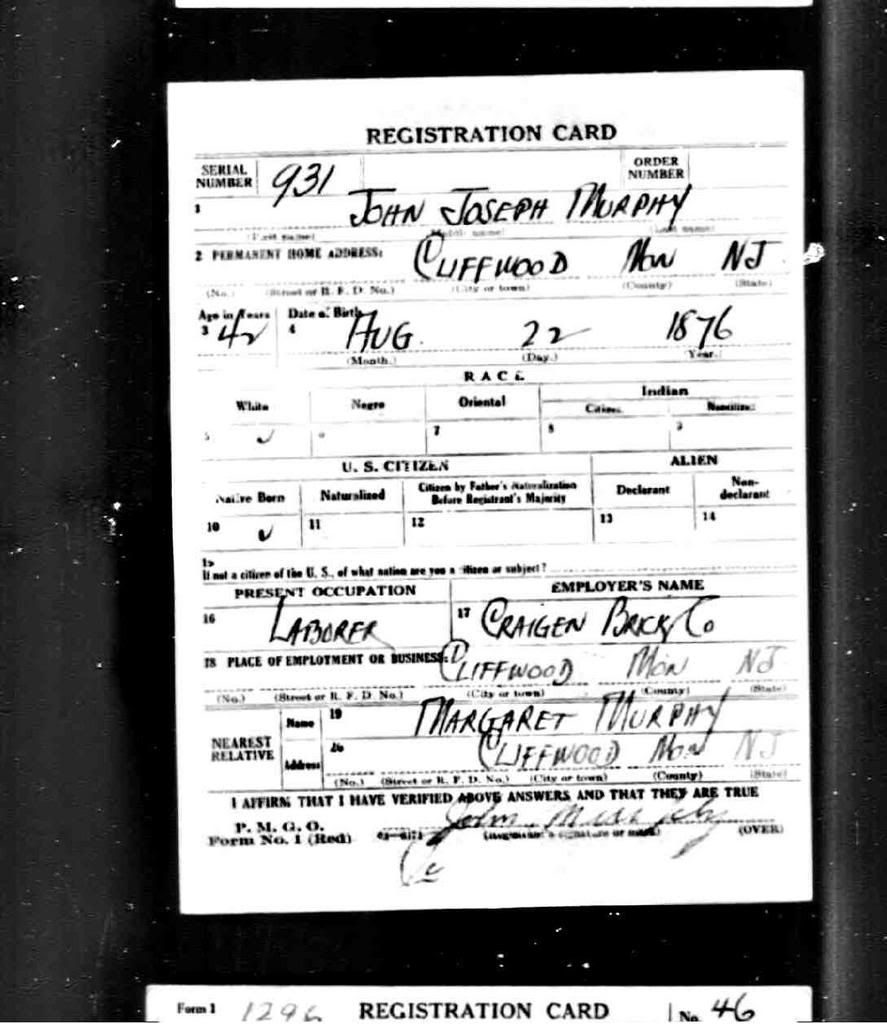 REGISTRATION CARD
SERIAL NUMBER 931 ORDER NUMBER
1 JOHN JOSEPH MURPHY
(First name) (Middle name) (Last name)
2 PERMANENT HOME ADDRESS: CLIFFWOOD Mon NJ
(No.) (Street or R. F. D. No.) (City or town) (County) (State)
Age in Years Date of Birth
3 42 4 AUG. 22 1876
(Month.) (Day.) (Year.)
RACE
White Negro Oriental Indian
Citizen Noncitizen
5 ✓ 6 7 8 9
U. S. CITIZEN ALIEN
Native Born Naturalized Citizen by Father's Naturalization Before Registrant's Majority Declarant Non-declarant
10 ✓ 11 12 13 14
15
If not a citizen of the U. S., of what nation are you a citizen or subject?
PRESENT OCCUPATION EMPLOYER'S NAME
16 LABORER 17 CRAIGEN BRICK Co
18 PLACE OF EMPLOYMENT OR BUSINESS: CLIFFWOOD Mon NJ
(No.) (Street or R. F. D. No.) (City or town) (County) (State)
NEAREST RELATIVE Name 19 MARGARET MURPHY
Address 20 CLIFFWOOD Mon NJ
(No.) (Street or R. F. D. No.) (City or town) (County) (State)
I AFFIRM THAT I HAVE VERIFIED ABOVE ANSWERS AND THAT THEY ARE TRUE
P. M. G. O.
Form No. 1 (Red) John Murphy
(Registrant's signature or mark) (OVER)
Form 1 1296 REGISTRATION CARD No. 46